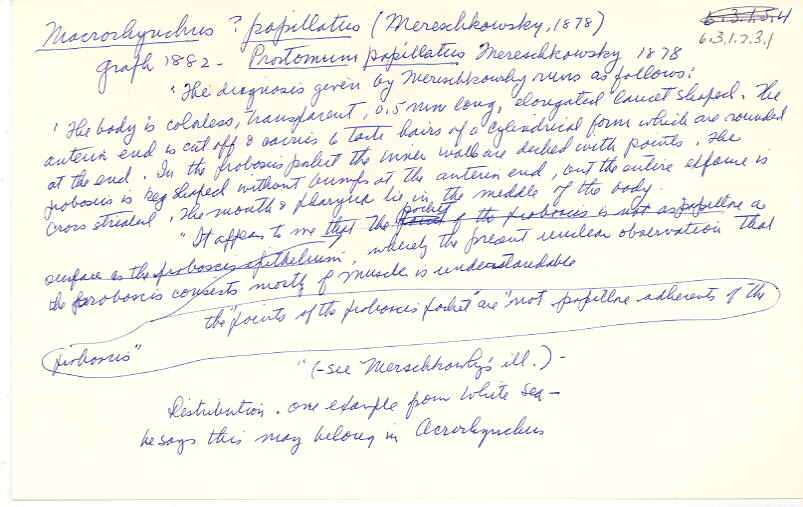 Macrorhynchus ? papillatus (Mereschkowsky, 1878)
6.3.1.5.4
6.3.1.7.3.1
Graff 1882 - Prostomum papillatus Mereschkowsky 1878
"The diagnosis given by Mereschkowsky runs as follows:
'The body is colorless, transparent, 0.5 mm long, elongated lancet shaped. The
anterior end is cut off & carries 6 taste hairs of a cylindrical form which are rounded
at the end. In the proboscis pocket the inner walls are decked with points. The
proboscis is keg shaped without bumps at the anterior end, but the entire surface is
cross striated. The mouth & pharynx lie in the middle of the body.
"It appears to me that the pocket of the proboscis is not as papillae a
surface as the proboscis epithelium, whereby the present unclear observation that
the proboscis consists mostly of muscle is understandable
the "points of the proboscis pocket" are "not papillae adherents of the
proboscis"
"(-see Merschkowsky's ill.) -
Distribution. one example from White Sea -
he says this may belong in Acrorhynchus